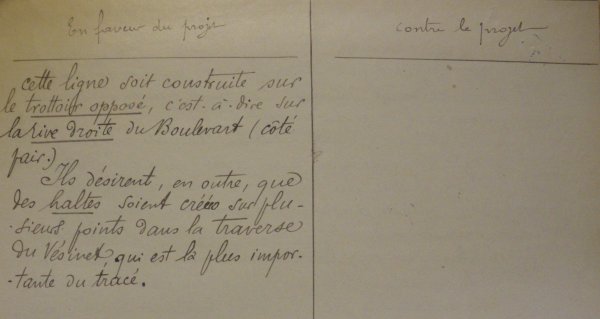 En faveur du projet
contre le projet
cette ligne soit construite sur
le trottoir opposé, c'est-à-dire sur
la rive droite du Boulevart (côté
pair.)
Ils désirent, en outre, que
des haltes soient créées sur plu-
-sieurs points dans la traverse
du Vésinet qui est la plus impor-
-tante du tracé.